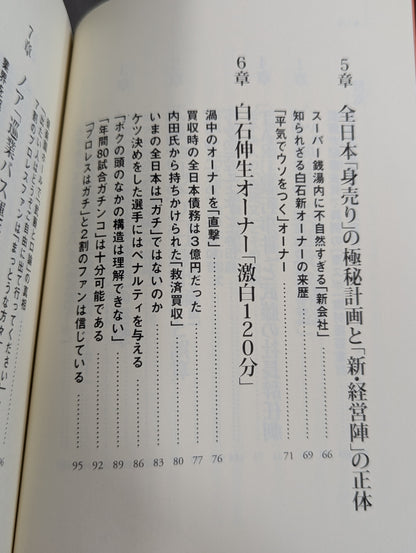 5章 全日本「身売り」の極秘計画と「新・経営陣」の正体
スーパー銭湯内に不自然すぎる「新会社」………… 66
知られざる白石新オーナーの来歴………… 69
「平気でウソをつく」オーナー………… 71
6章 白石伸生オーナー「激白120分」
渦中のオーナーを「直撃」………… 76
買収時の全日本債務は3億円だった………… 77
内田氏から持ちかけられた「救済買収」………… 80
いまの全日本は「ガチ」ではないのか………… 83
ケツ決めをした選手にはペナルティを与える………… 86
「ボクの頭のなかの構造は理解できない」………… 89
「年間80試合ガチンコ」は十分可能である………… 92
「プロレスはガチ」と2割のファンは信じている………… 95
7章 ノア